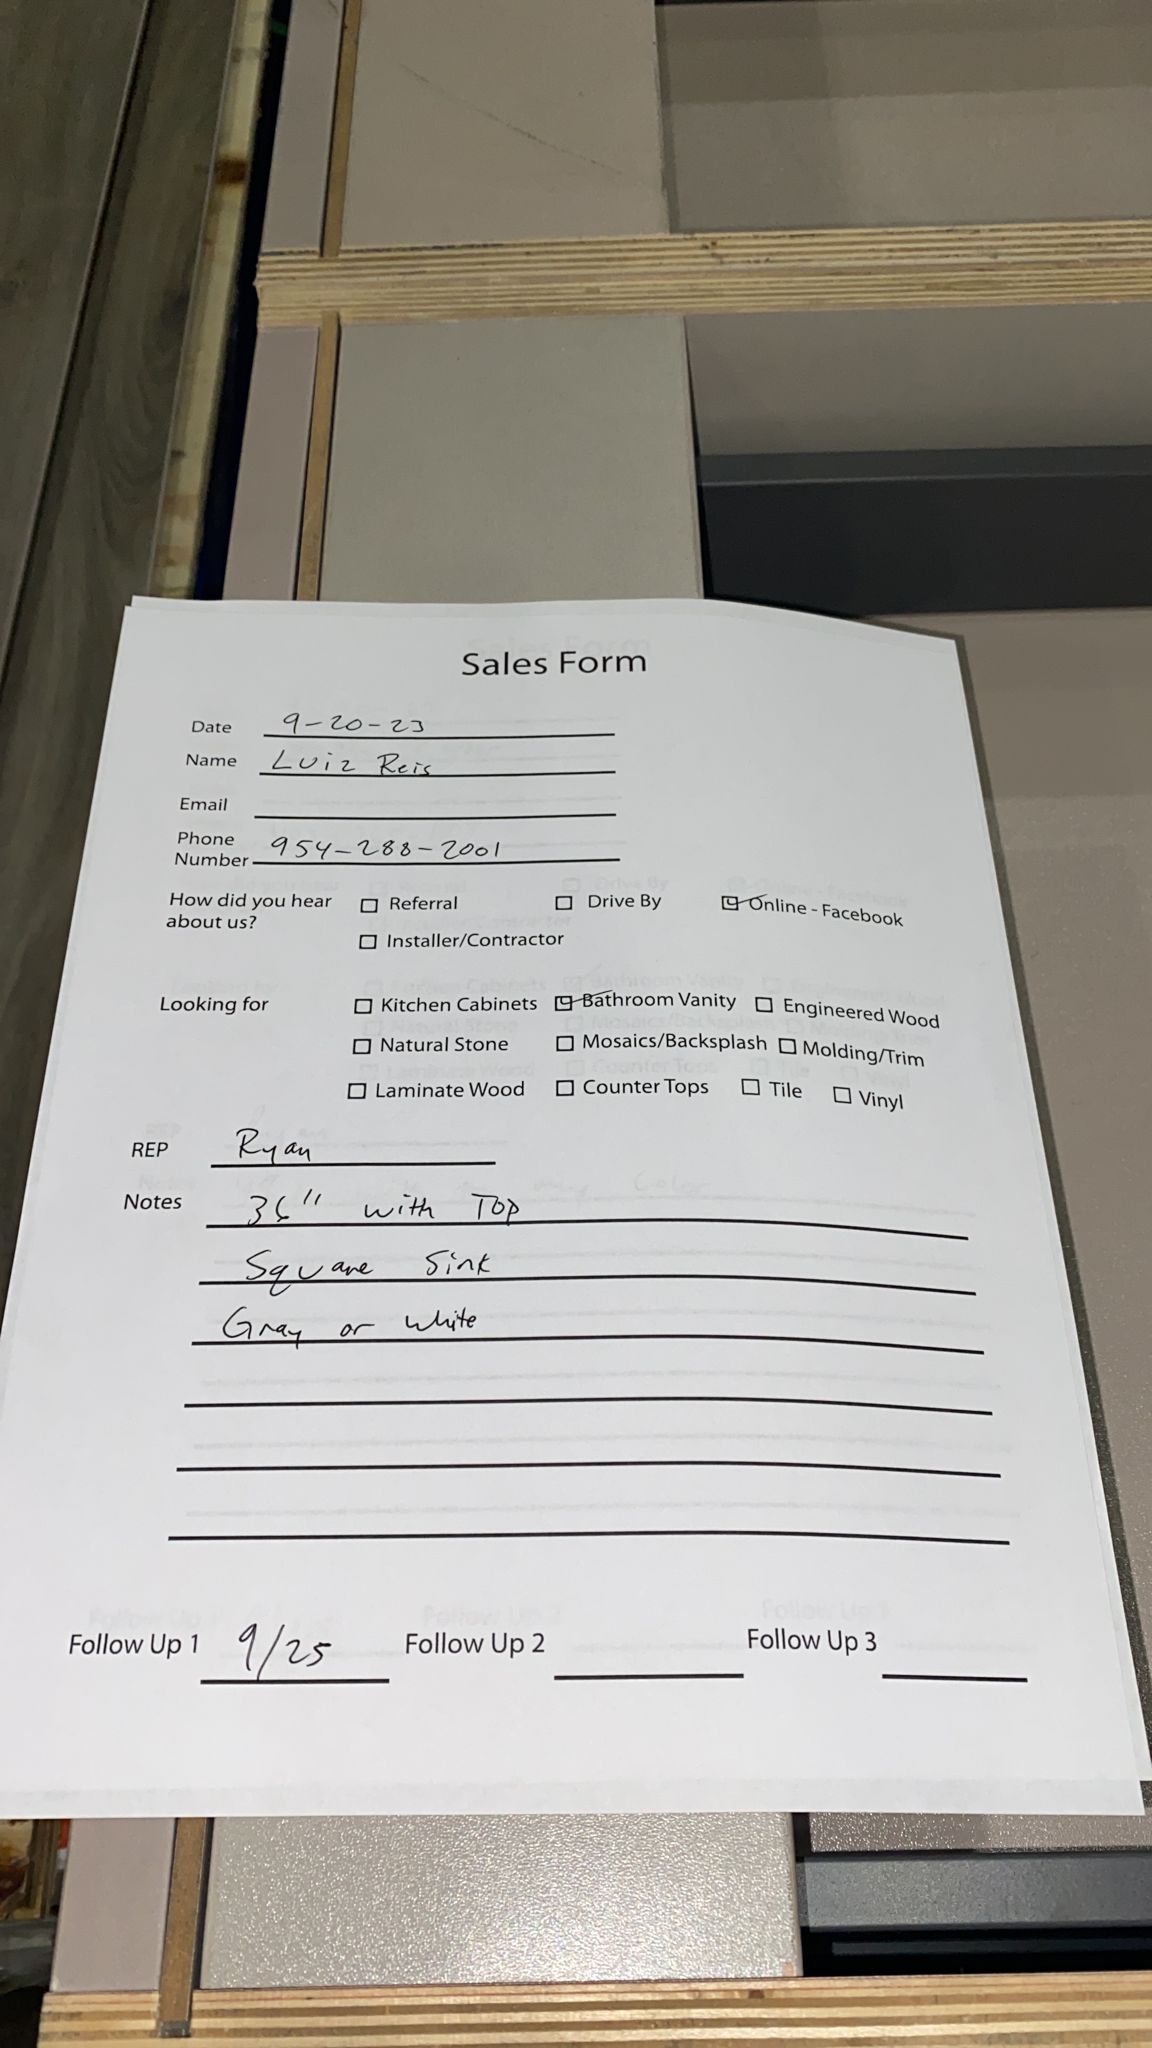 Sales Form
Date 9-20-23
Name Luiz Reis
Email
Phone Number 954-288-2001
How did you hear about us? Referral Drive By Online - Facebook
Installer/Contractor
Looking for Kitchen Cabinets Bathroom Vanity Engineered Wood
Natural Stone Mosaics/Backsplash Molding/Trim
Laminate Wood Counter Tops Tile Vinyl
REP Ryan
Notes 36" with Top
Square Sink
Gray or white
Follow Up 1 9/25 Follow Up 2 Follow Up 3